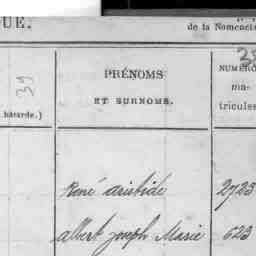 UE.
de la Nomencla
39
PRÉNOMS
ET SURNOMS.
NUMÉRO
ma-
tricules
bâtarde.)
René aristide 2723
albert joseph Marie 623